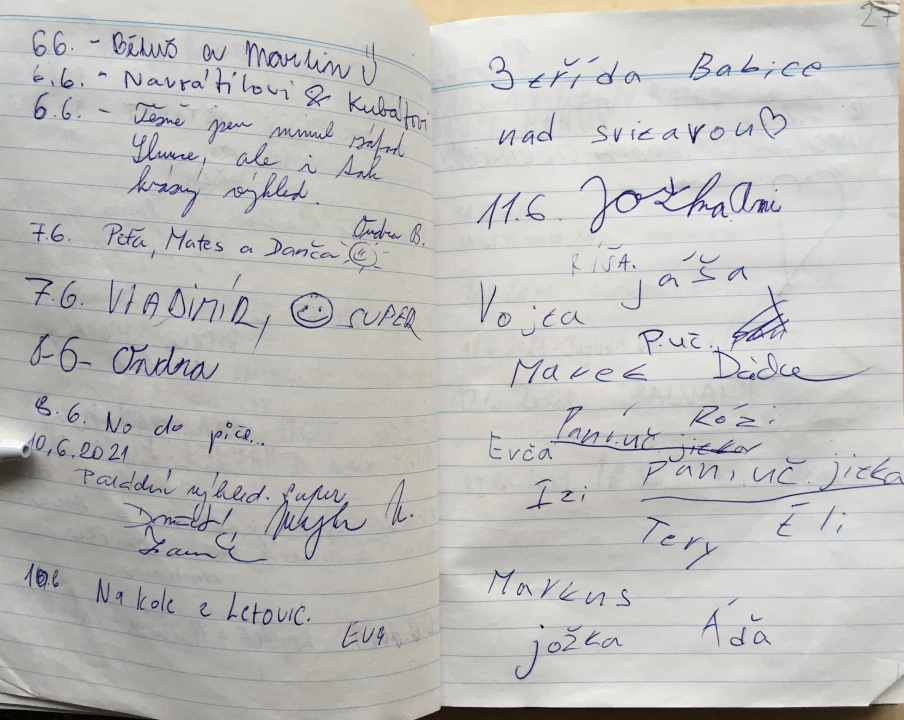 6.6. - Běluš a Martin
6.6. - Navrátilovi & Kubátovi
6.6. - Těsně jsem minul západ
Slunce, ale i tak
krásný výhled.
Ondra B.
7.6. Peťa, Mates a Danča
7.6. VLADIMÍR, SUPER
8-6- Ondra
8.6. No do piče...
10.6.2021
Parádní výhled. Super
10.6 Na kole z Letovic.
Eva
27
3 třída Babice
nad svitavou♡
11.6. Jožka Ani
RÍŠA. Jáša
Vojta
P.uč.
Marek Dáda
Rózi
Evča Paní.uč jitka
Paní.uč.jitka
Izi
Tery Éli
Markus
jožka Áďa